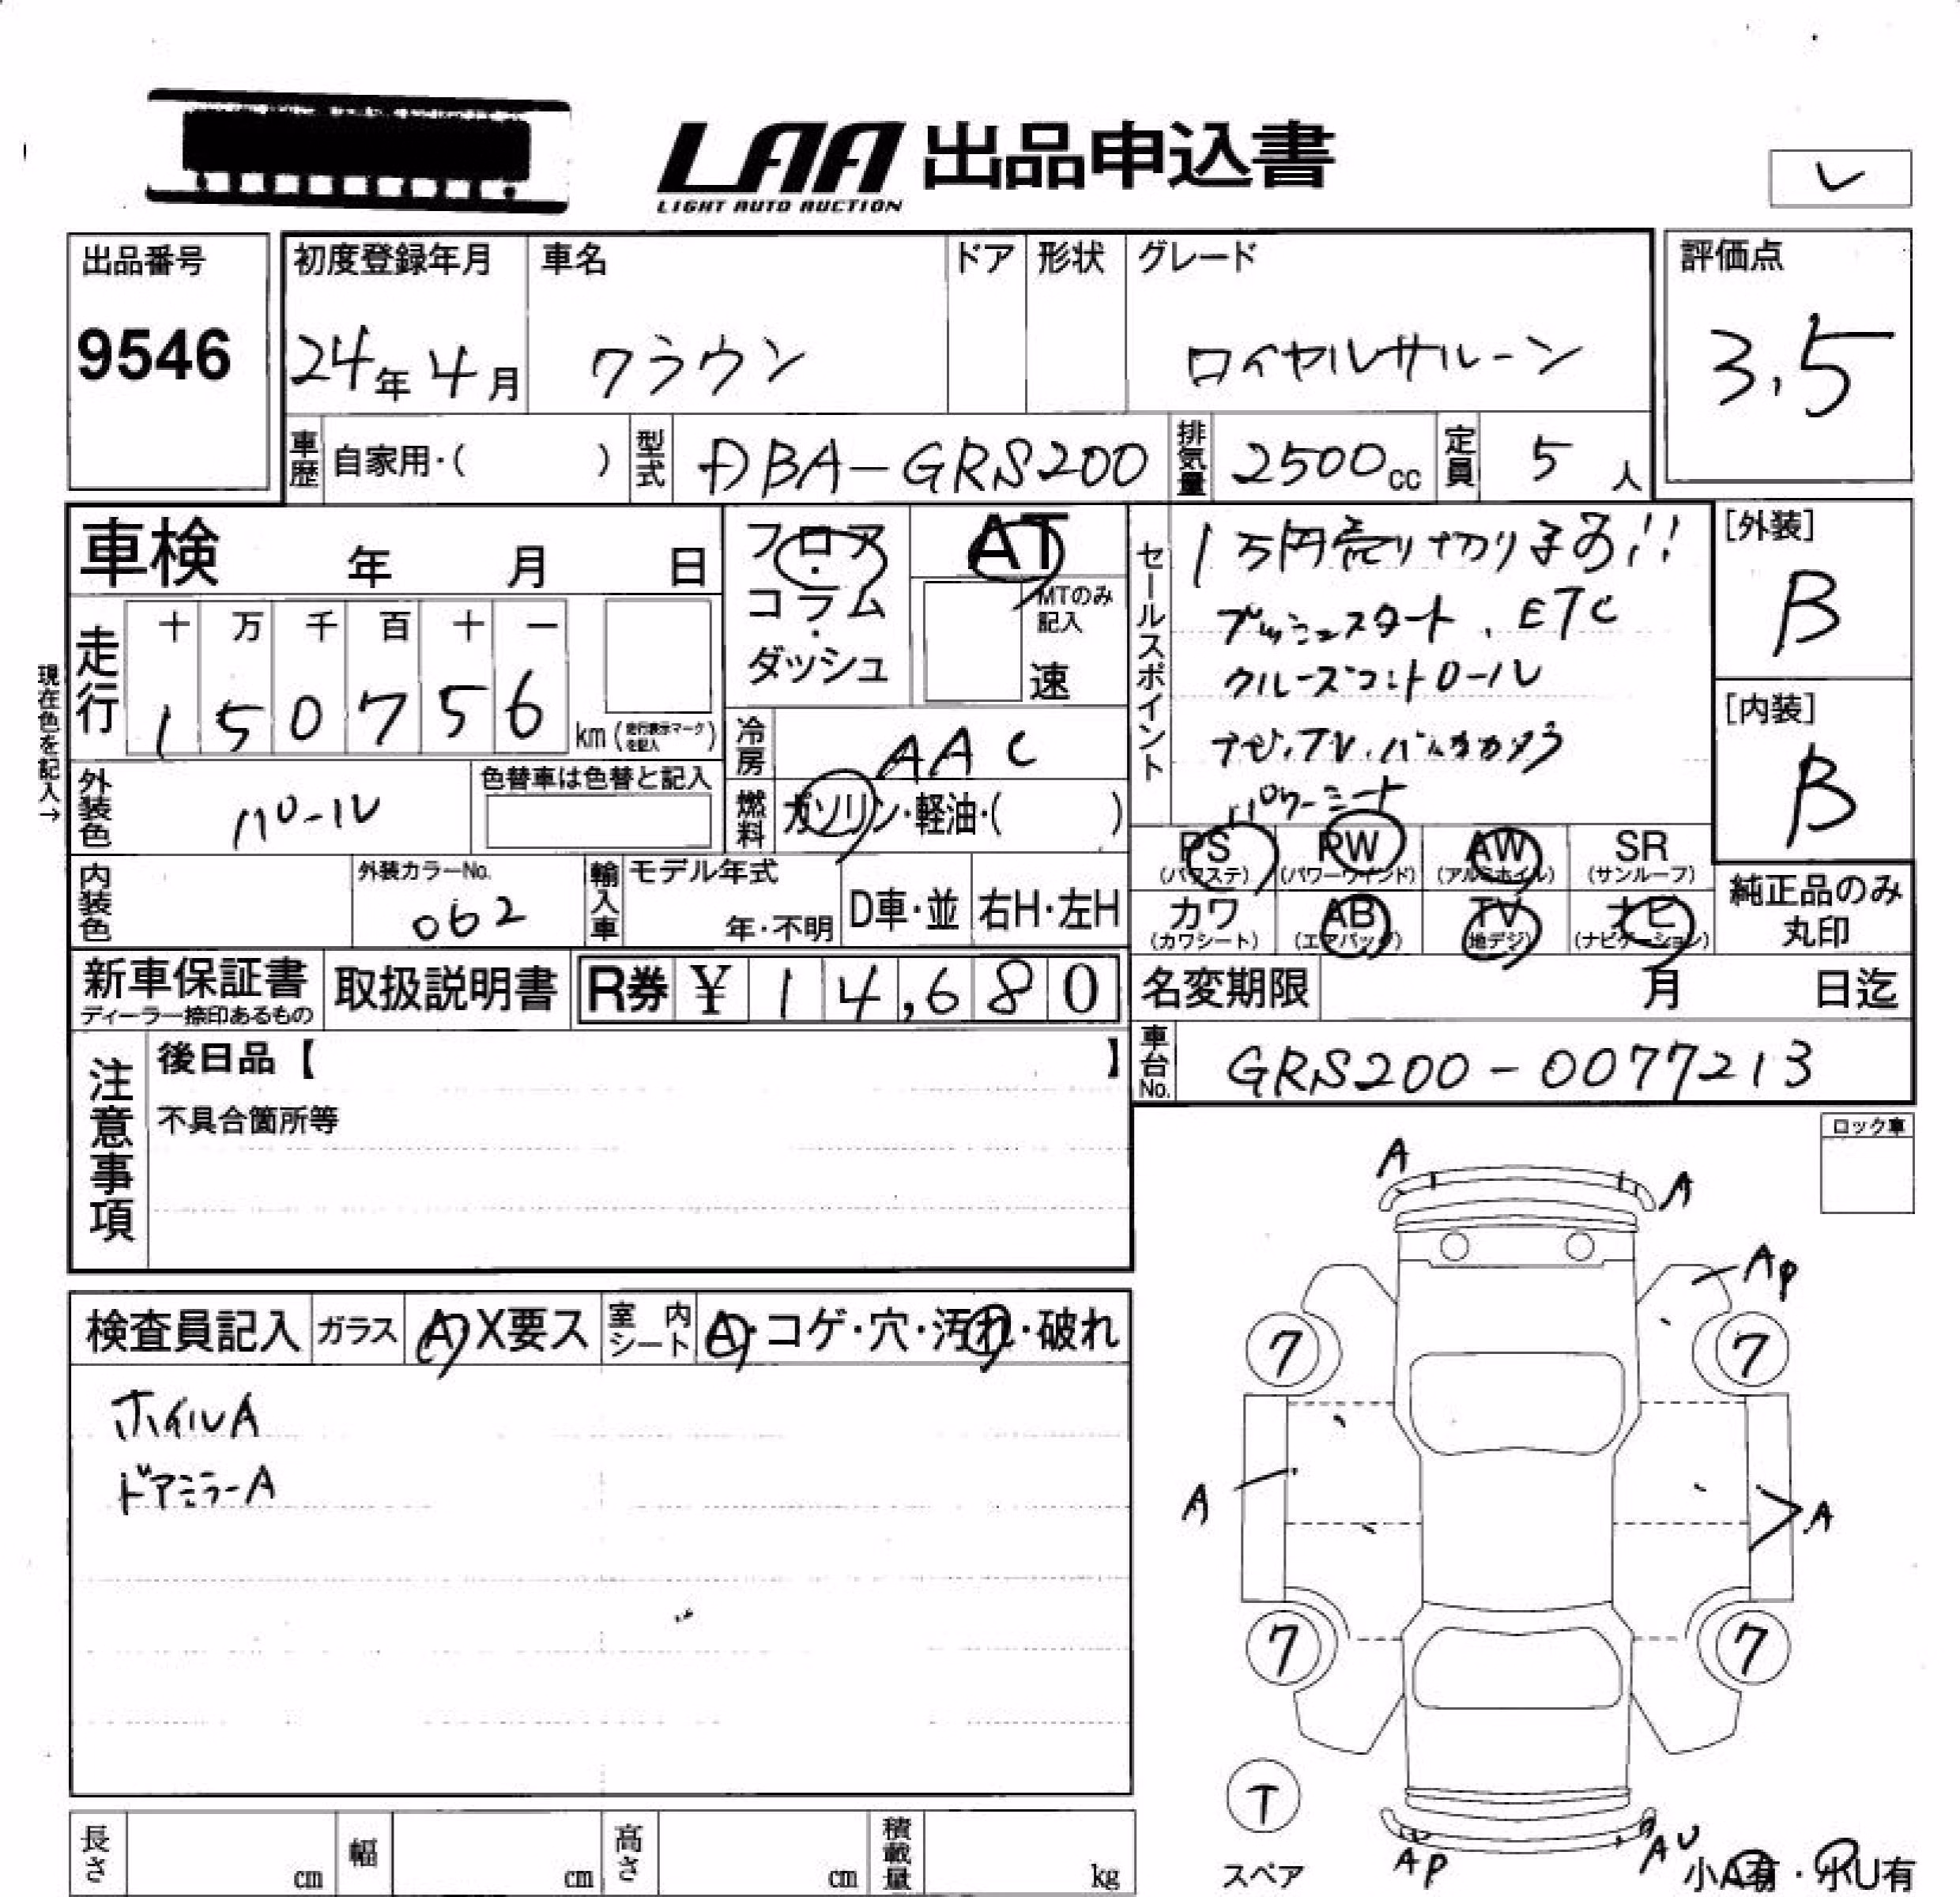 LAA 出品申込書
LIGHT AUTO AUCTION
レ
出品番号
9546
初度登録年月
24年4月
車名
クラウン
ドア
形状
グレード
ロイヤルサルーン
評価点
3.5
車歴
自家用・( )
型式
DBA-GRS200
排気量
2500cc
定員
5人
車検 年 月 日
走行
十 万 千 百 十 一
1 5 0 7 5 6
km(走行表示マークを記入)
現在色を記入→
外装色
パール
色替車は色替と記入
内装色
外装カラーNo.
062
輸入車
モデル年式
年・不明
D車・並
右H・左H
フロア
・
コラム
・
ダッシュ
AT
MTのみ
記入
速
冷房
AAC
燃料
ガソリン・軽油・( )
セールスポイント
1万円売り切ります!!
プッシュスタート、ETC
クルーズコントロール
ナビ、TV、バックカメラ
パワーシート
[外装]
B
[内装]
B
PS
(パワステ)
PW
(パワーウインド)
AW
(アルミホイル)
SR
(サンルーフ)
カワ
(カワシート)
AB
(エアバッグ)
TV
(地デジ)
ナビ
(ナビゲーション)
純正品のみ
丸印
新車保証書
ディーラー捺印あるもの
取扱説明書
R券 ¥ 14,680
名変期限 月 日迄
車台No.
GRS200-0077213
注意事項
後日品【 】
不具合箇所等
ロック車
検査員記入
ガラス
A・X要ス
室内
シート
A・コゲ・穴・汚れ・破れ
ホイルA
ドアミラーA
A
A
AP
7
7
A
A
7
7
T
スペア
AP
AU
小A有・小U有
長さ cm
幅 cm
高さ cm
積載量 kg